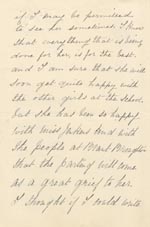 if I may be permitted
to see her sometimes I know
that everything that is being
done for her, is for the best
and I am sure that she will
soon get quite happy with
the other girls at the school.
but she has been so happy
with Miss and with
the people at
that the parting will come
as a great grief to her
I thought if I could write